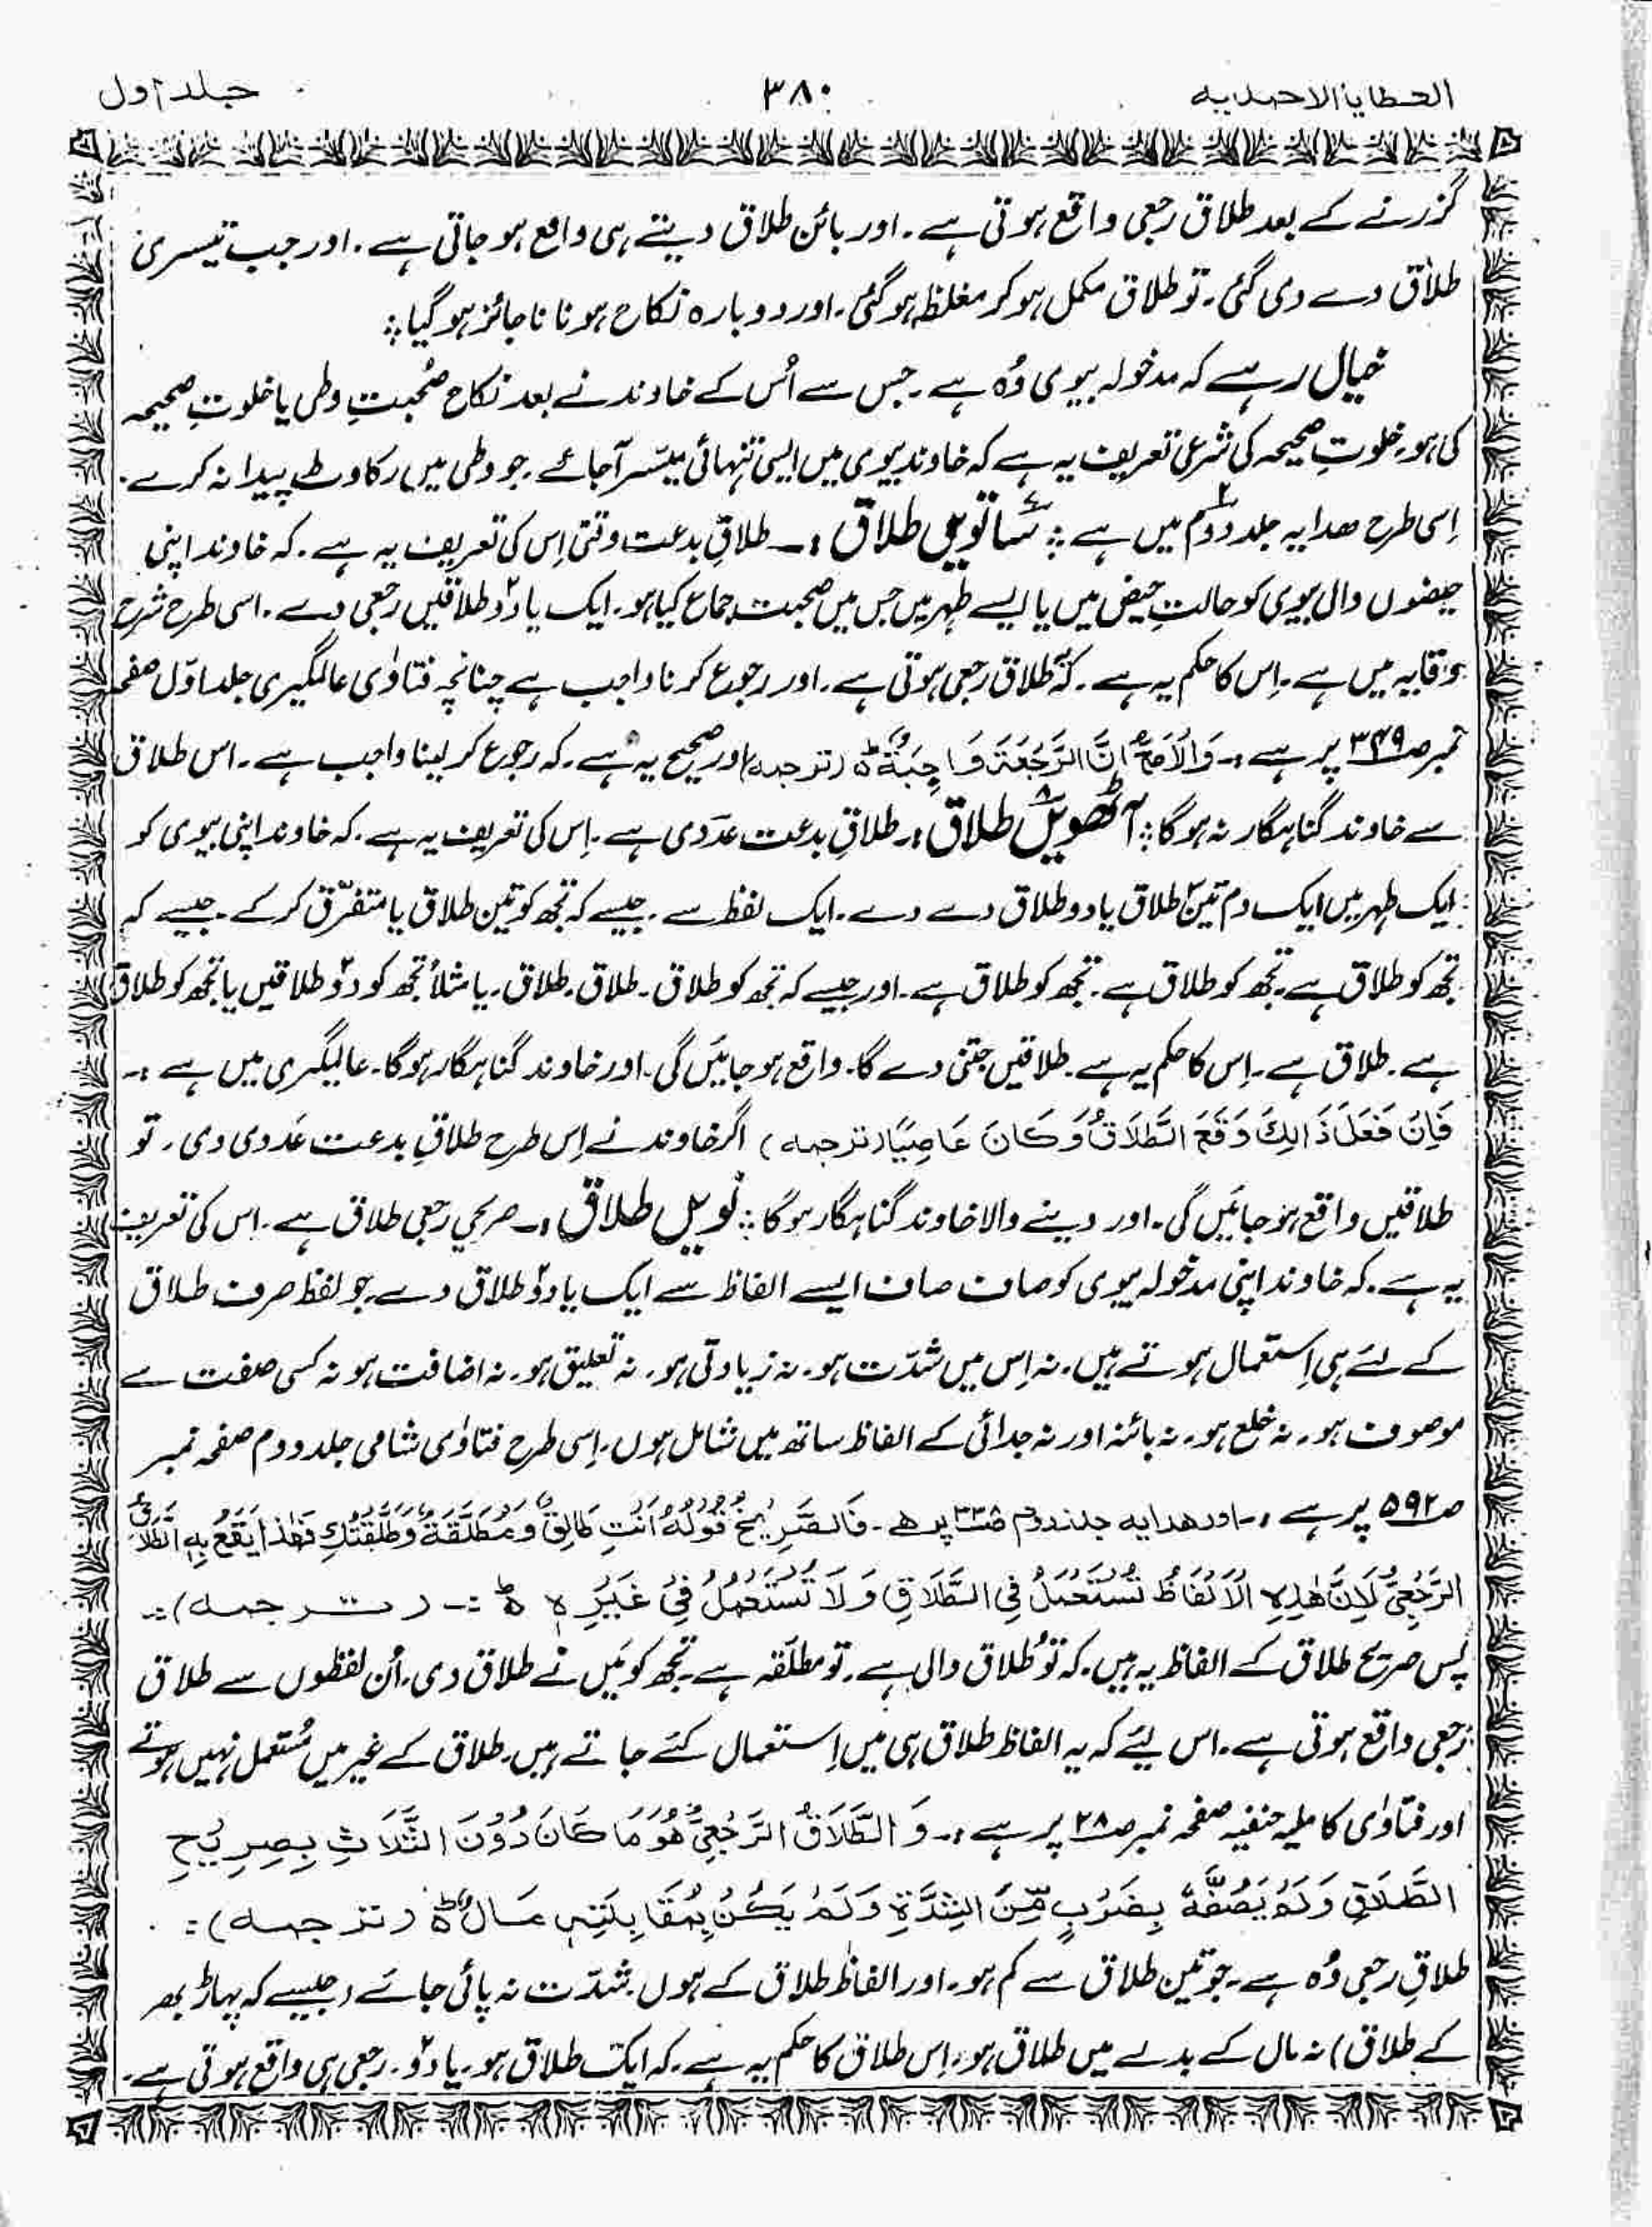 العطایا الاحمدیه ۳۸۰ جلد اول
گزرنے کے بعد طلاق رجعی واقع ہوتی ہے۔ اور بائن طلاق دیتے ہی واقع ہو جاتی ہے۔ اور جب تیسری
طلاق دے دی گئی۔ تو طلاق مکمل ہو کر مغلظ ہو گئی۔ اور دوبارہ نکاح ہونا ناجائز ہو گیا؛
خیال رہے کہ مدخولہ بیوی وُہ ہے۔ جس سے اُس کے خاوند نے بعد نکاح صُحبتِ وطی یا خلوتِ صحیحہ
کی ہو۔ خلوتِ صحیحہ کی شرعی تعریف یہ ہے کہ خاوند بیوی میں ایسی تنہائی میسّر آجائے۔ جو وطی میں رکاوٹ پیدا نہ کرے۔
اِسی طرح ھدایہ جلد دوم میں ہے؛ ساتویں طلاق :۔ طلاقِ بدعت وقتی اِس کی تعریف یہ ہے۔ کہ خاوند اپنی
حیضوں والی بیوی کو حالتِ حیض میں یا ایسے طہر میں جس میں صحبت جماع کیا ہو۔ ایک یا دو طلاقیں رجعی دے۔ اسی طرح شرح
وقایہ میں ہے۔ اِس کا حکم یہ ہے۔ کہ یہ طلاق رجعی ہوتی ہے۔ اور رجوع کرنا واجب ہے چنانچہ فتاوٰی عالمگیری جلد اوّل صفحہ
نمبر ص۳۴۹ پر ہے :۔ وَالْاَصَحُّ اِنَّ الرَّجْعَةَ وَاجِبَةٌ ط (ترجمہ) اور صحیح یہ ہے۔ کہ رجوع کر لینا واجب ہے۔ اس طلاق
سے خاوند گناہگار نہ ہوگا؛ آٹھویں طلاق :۔ طلاقِ بدعت عدَدی ہے۔ اِس کی تعریف یہ ہے۔ کہ خاوند اپنی بیوی کو
ایک طہر میں ایک دم تین طلاق یا دو طلاق دے دے۔ ایک لفظ سے۔ جیسے کہ تجھ کو تین طلاق یا متفرّق کر کے۔ جیسے کہ
تجھ کو طلاق ہے۔ تجھ کو طلاق ہے۔ تجھ کو طلاق ہے۔ اور جیسے کہ تجھ کو طلاق۔ طلاق۔ طلاق۔ یا مثلاً تجھ کو دو طلاقیں یا تجھ کو طلاق
ہے۔ طلاق ہے۔ اِس کا حکم یہ ہے۔ طلاقیں جتنی دے گا۔ واقع ہو جائیں گی۔ اور خاوند گناہگار ہوگا۔ عالمگیری میں ہے :۔
فَاِنْ فَعَلَ ذَالِكَ وَقَعَ الطَّلَاقُ وَكَانَ عَاصِيًا (ترجمہ) اگر خاوند نے اِس طرح طلاقِ بدعت عَددی دی۔ تو
طلاقیں واقع ہو جائیں گی۔ اور دینے والا خاوند گناہگار ہوگا؛ نویں طلاق :۔ صریحی رجعی طلاق ہے۔ اِس کی تعریف
یہ ہے۔ کہ خاوند اپنی مدخولہ بیوی کو صاف صاف ایسے الفاظ سے ایک یا دو طلاق دے۔ جو لفظ صرف طلاق
کے لئے ہی اِستعمال ہوتے ہیں۔ نہ اِس میں شدّت ہو۔ نہ زیادتی ہو۔ نہ تعلیق ہو۔ نہ اضافت ہو نہ کسی صفت سے
موصوف ہو۔ نہ خلع ہو۔ نہ بائنہ اور نہ جدائی کے الفاظ ساتھ میں شامل ہوں۔ اِسی طرح فتاوٰی شامی جلد دوم صفحہ نمبر
ص۵۹۲ پر ہے :۔ اور ھدایہ جلد دوم ص۳۳۸ پر ھے۔ فَالصَّرِيْحُ قَوْلُهُ اَنْتِ طَالِقٌ وَمُطَلَّقَةٌ وَطَلَّقْتُكِ فَهٰذَا يَقَعُ بِهِ الطَّلَاقُ
الرَّجْعِيُّ لِاَنَّ هٰذِهِ الْاَلْفَاظَ تُسْتَعْمَلُ فِي الطَّلَاقِ وَلَا تُسْتَعْمَلُ فِيْ غَيْرِهٖ ط :۔ (ترجمہ) :۔
پس صریح طلاق کے الفاظ یہ ہیں۔ کہ تُو طلاق والی ہے۔ تو مطلّقہ ہے۔ تجھ کو مَیں نے طلاق دی۔ اُن لفظوں سے طلاق
رجعی واقع ہوتی ہے۔ اس لیئے کہ یہ الفاظ طلاق ہی میں اِستعمال کئے جاتے ہیں۔ طلاق کے غیر میں مُستعمل نہیں ہوتے
اور فتاوٰی کاملیہ حنفیہ صفحہ نمبر ص۲۸ پر ہے :۔ وَ الطَّلَاقُ الرَّجْعِيُّ هُوَ مَا كَانَ دُوْنَ الثَّلَاثِ بِصَرِيْحِ
الطَّلَاقِ وَلَمْ يَصِفْهُ بِضَرْبٍ مِّنَ الشِّدَّةِ وَلَمْ يَكُنْ بِمُقَابِلَتِهٖ مَالٌ ط (ترجمہ) :
طلاقِ رجعی وُہ ہے۔ جو تین طلاق سے کم ہو۔ اور الفاظ طلاق کے ہوں شدّت نہ پائی جائے (جیسے کہ پہاڑ بھر
کے طلاق) نہ مال کے بدلے میں طلاق ہو۔ اِس طلاق کا حکم یہ ہے۔ کہ ایک طلاق ہو۔ یا دو۔ رجعی ہی واقع ہوتی ہے۔